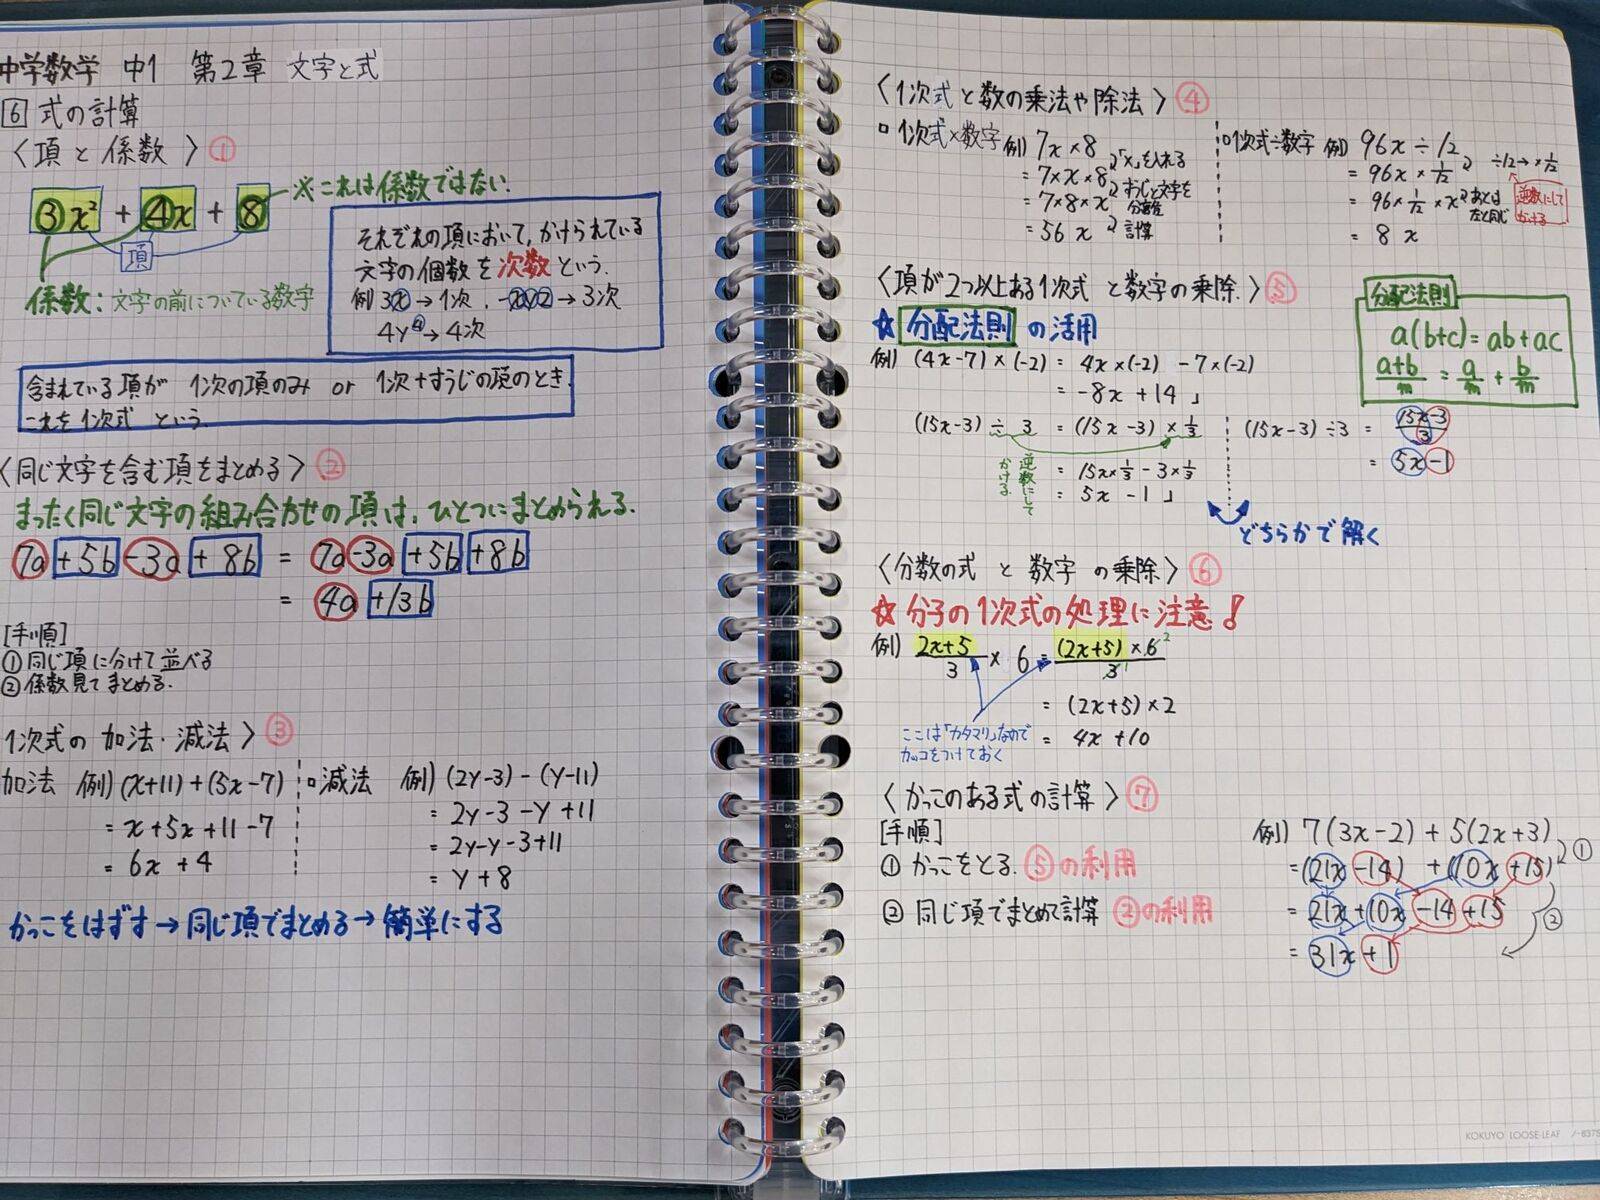 中学数学 中1 第2章 文字と式
6 式の計算
〈項と係数〉①
3x² + 4x + 8 ※これは係数ではない.
項
係数：文字の前についている数字
それぞれの項において,かけられている
文字の個数を次数という.
例 3x → 1次,
→ 3次
4y④ → 4次
含まれている項が 1次の項のみ or 1次+すうじの項のとき.
これを1次式 という.
〈同じ文字を含む項をまとめる〉②
まったく同じ文字の組み合わせの項は,ひとつにまとめられる.
7a +5b -3a + 8b = 7a -3a +5b +8b
= 4a +13b
[手順]
①同じ項に分けて並べる
②係数見てまとめる.
1次式の加法・減法〉③
加法 例) (x+11)+(5x-7)
= x+5x+11-7
= 6x+4
▫減法 例) (2y-3)-(y-11)
= 2y-3-y+11
= 2y-y-3+11
= y+8
かっこをはずす→同じ項でまとめる→簡単にする
〈1次式と数の乗法や除法〉④
▫1次式×数字 例) 7x×8
= 7×x×8 「×」を入れる
= 7×8×x すうじと文字を
= 56x 計算
▫1次式÷数字 例) 96x÷12
= 96x×1/12 ÷12→×1/12
逆数にして
かける
= 96×1/12×x あとは
左と同じ
= 8x
〈項が2つ以上ある1次式と数字の乗除.〉⑤
☆分配法則の活用
例) (4x-7)×(-2) = 4x×(-2) -7×(-2)
= -8x+14
分配法則
a(b+c)=ab+ac
a+b/m = a/m + b/m
(15x-3)÷3 = (15x-3)×1/3
逆数にして
かける
= 15x×1/3 - 3×1/3
= 5x-1
(15x-3)÷3 = 15x-3/3
= 5x-1
どちらかで解く
〈分数の式と数字の乗除〉⑥
☆分子の1次式の処理に注意!
例) 2x+5/3 × 6 = (2x+5)×6²/3¹
= (2x+5)×2
= 4x+10
ここは「カタマリ」なので
カッコをつけておく
〈かっこのある式の計算〉⑦
[手順]
①かっこをとる. ⑤の利用
②同じ項でまとめて計算 ②の利用
例) 7(3x-2)+5(2x+3)
=(21x-14)+(10x+15) ①
= 21x+10x-14+15 ②
= 31x+1
KOKUYO LOOSE-LEAF